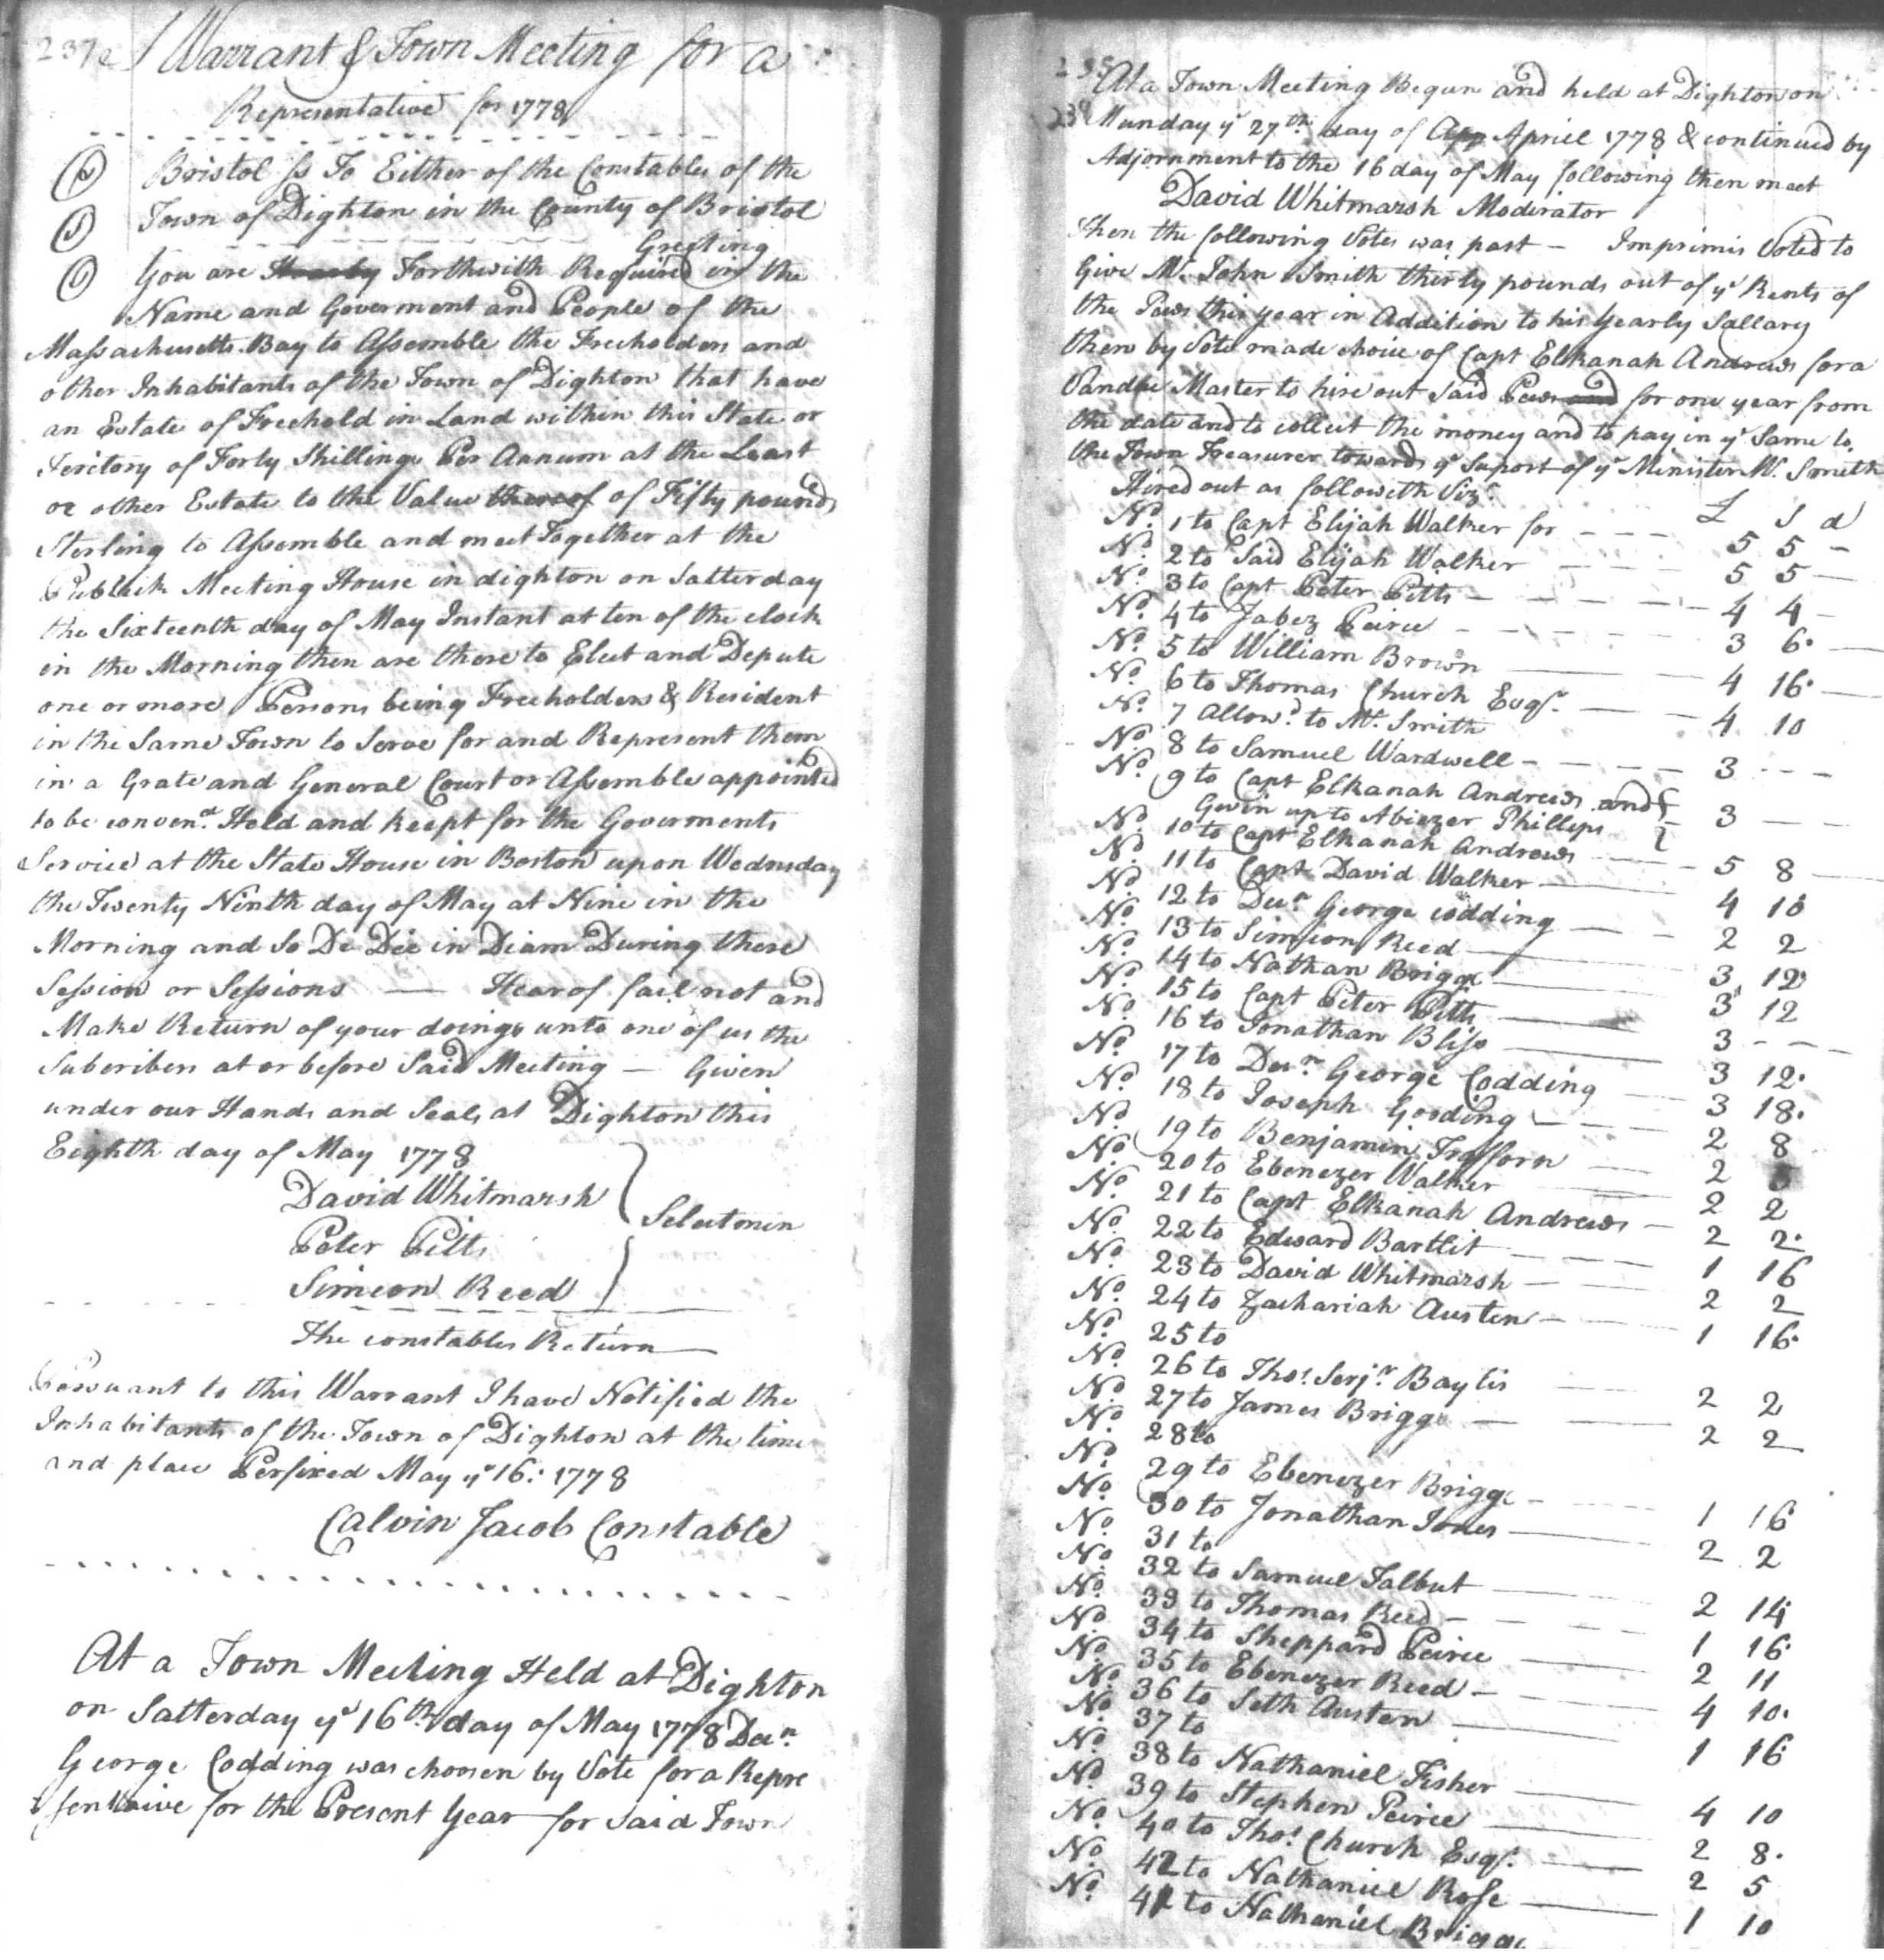 237
Warrant & Town Meeting for a
Representative for 1778
Bristol ss To Either of the Constables of the
Town of Dighton in the County of Bristol
Greeting
You are Hearby Forthwith Required in the
Name and Goverment and People of the
Massachusetts Bay to Assemble the Freeholders and
other Inhabitants of the Town of Dighton that have
an Estate of Freehold in Land within this State or
Teritory of Forty Shillings Per Annum at the Least
or other Estate to the Value thereof of Fifty pounds
Sterling to Assemble and meet Together at the
Publick Meeting House in dighton on Satterday
the Sixteenth day of May Instant at ten of the clock
in the Morning then are there to Elect and Depute
one or more Persons being Freeholders & Resident
in the Same Town to Serve for and Represent them
in a Grate and General Court or Assemble appointed
to be conven.d Held and keept for the Goverments
Service at the State House in Boston upon Wednsday
the Twenty Ninth day of May at Nine in the
Morning and So De Die in Diam During there
Session or Sessions — Hearof fail not and
Make Return of your doings unto one of us the
Subcribers at or before Said Meeting — Given
under our Hands and Seals at Dighton this
Eighth day of May 1778
David Whitmarsh
Selectmen
Peter Pitts
Simeon Reed
The constables Return
Persuant to this Warrant I have Notified the
Inhabitants of the Town of Dighton at the time
and place Perfixed May ye 16: 1778
Calvin Jacob Constable
At a Town Meeting Held at Dighton
on Satterday ye 16th day of May 1778 Dea.n
George Codding was choosen by Vote for a Repre
sentaive for the Present Year for Said Town
At a Town Meeting Begun and held at Dighton on
Munday ye 27th day of App Aprill 1778 & continued by
Adjornment to the 16 day of May following then meet
David Whitmarsh Moderator
Then the following Votes was past — Imprimis Voted to
Give Mr. John Smith thirty pounds out of ye Rents of
the Pews this year in Addition to his Yearly Sallary
then by Vote made choice of Capt Elkanah Andrews for a
Vandue Master to hire out Said Pews and for one year from
the date and to collect the money and to pay in ye Same to
the Town Treasurer towards ye Suport of ye Minister Mr. Smith
Hired out as followeth Viz.
£ s d
No. 1 to Capt Elijah Walker for 5 5 -
No. 2 to Said Elijah Walker 5 5 -
No. 3 to Capt Peter Pitts 4 4 -
No. 4 to Jabez Peirce 3 6
No. 5 to William Brown 4 16
No. 6 to Thomas Church Esqr. 4 10
No. 7 Allow.d to Mr. Smith
No. 8 to Samuel Wardwell 3 - -
No. 9 to Capt Elkanah Andrews and
Gevin up to Abiezer Phillips 3 - -
No. 10 to Capt Elkanah Andrews 5 8
No. 11 to Capt David Walker 4 10
No. 12 to Dea.n George Codding 2 2
No. 13 to Simeon Reed 3 12
No. 14 to Nathan Briggs 3 12
No. 15 to Capt Peter Pitts 3 - -
No. 16 to Jonathan Bliss 3 12
No. 17 to Dea.n George Codding 3 18
No. 18 to Joseph Gooding 2 8
No. 19 to Benjamin Trafforn 2
No. 20 to Ebenezer Walker 2 2
No. 21 to Capt Elkanah Andrews 2 2
No. 22 to Edward Bartlit 1 16
No. 23 to David Whitmarsh 2 2
No. 24 to Zachariah Austen 1 16
No. 25 to
No. 26 to Tho.s Serj.r Baylis 2 2
No. 27 to James Briggs 2 2
No. 28 to
No. 29 to Ebenezer Briggs 1 16
No. 30 to Jonathan Jones 2 2
No. 31 to
No. 32 to Samuel Talbut 2 14
No. 33 to Thomas Reed 1 16
No. 34 to Sheppard Peirce 2 11
No. 35 to Ebenezer Reed 4 10
No. 36 to Seth Austen 1 16
No. 37 to
No. 38 to Nathaniel Fisher 4 10
No. 39 to Stephen Peirce 2 8
No. 40 to Tho.s Church Esqr. 2 5
No. 42 to Nathaniel Rose 1 10
No. 41 to Nathaniel Briggs